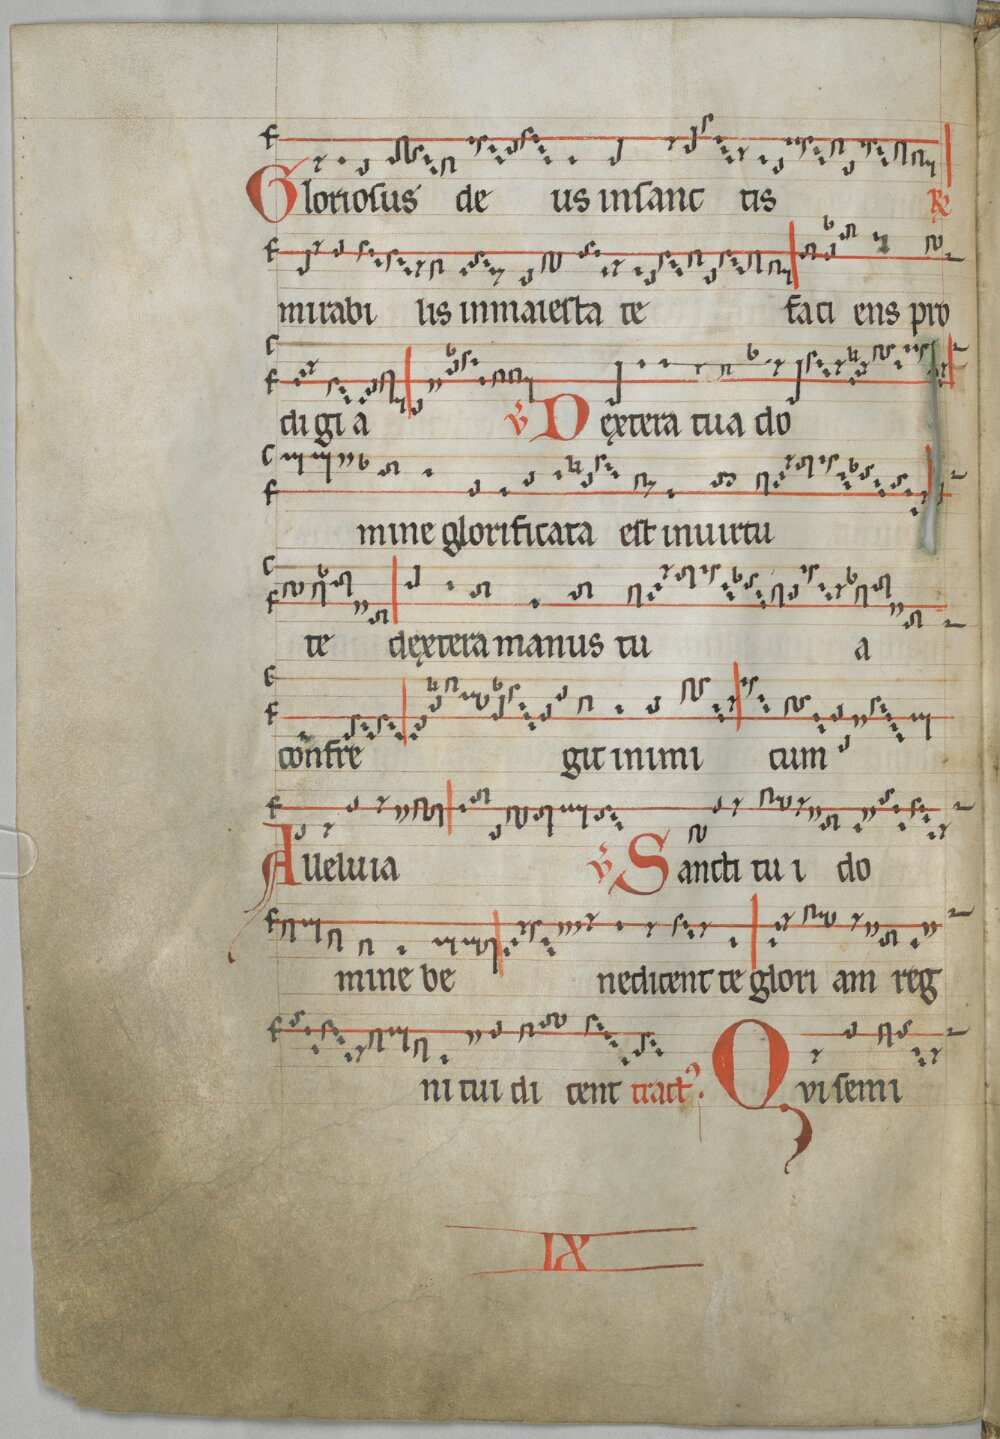 Gloriosus de us in sanc tis ℟
mirabi lis in maiesta te faci ens pro
di gi a ℣ Dextera tua do
mine glorificata est in uirtu
te dextera manus tu a
confre git inimi cum
Alleluia ℣ Sancti tu i do
mine be nedicent te glori am reg
ni tui di cent tract? Qui semi
IX